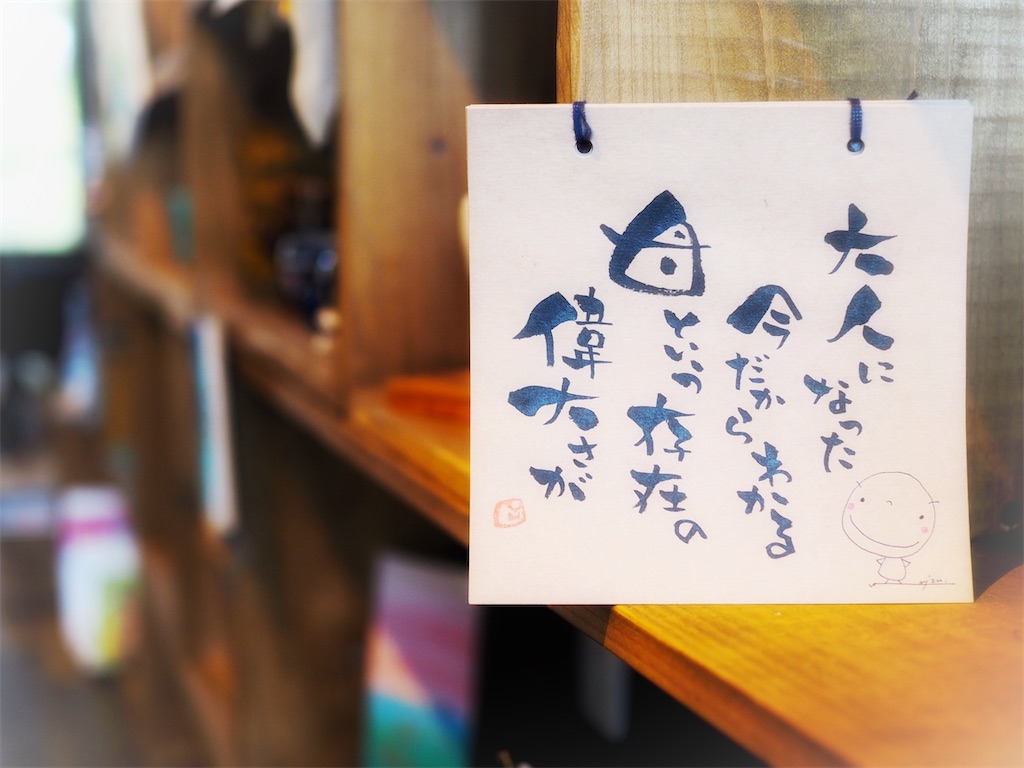 大人になった
今だからわかる
母という存在の
偉大さが